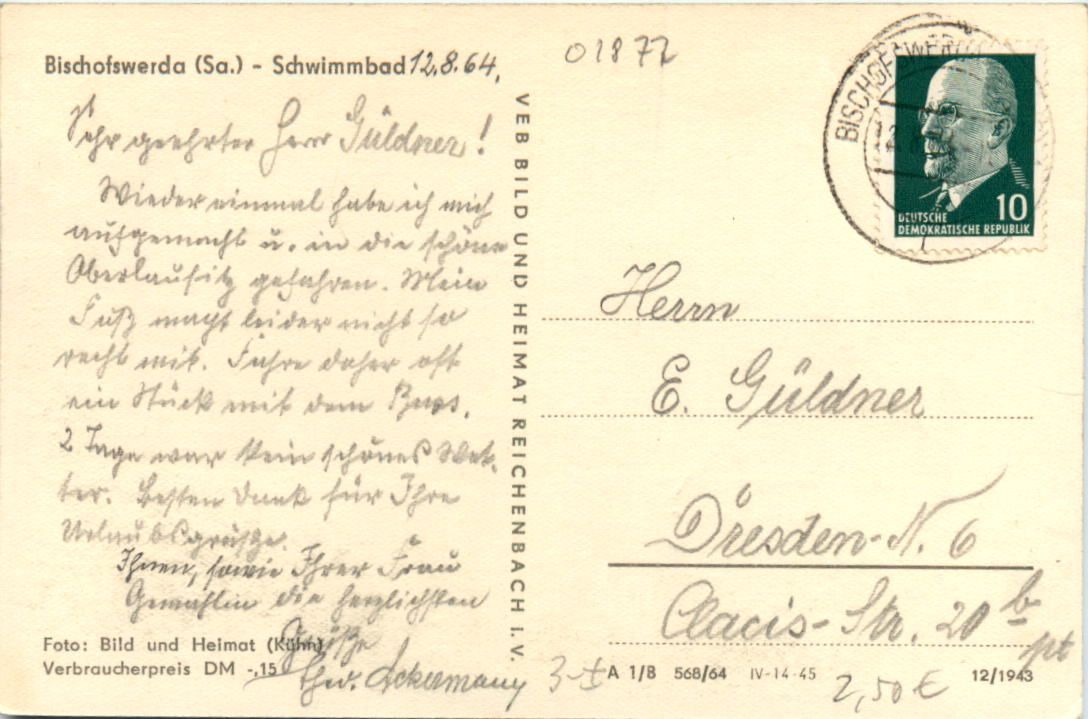 Bischofswerda (Sa.) - Schwimmbad 12.8.64.
Sehr geehrter Herr Güldner!
Wieder einmal habe ich mich
aufgemacht u. in die schöne
Oberlausitz gefahren. Mein
Fuß macht leider nicht so
recht mit. Fahre daher oft
ein Stück mit dem Bus.
2 Tage war kein schönes Wet-
ter. Besten Dank für Ihre
Urlaubsgrüße.
Ihnen, sowie Ihrer Frau
Gemahlin die herzlichsten
Grüße
Ackermann
Foto: Bild und Heimat (Kühn)
Verbraucherpreis DM -,15
VEB BILD UND HEIMAT REICHENBACH I. V.
01872
BISCHOFSWERDA
DEUTSCHE
DEMOKRATISCHE REPUBLIK
10
Herrn
E. Güldner
Dresden-N. 6
Clacis-Str. 20 b
pt
3-I
A 1/B 568/64 IV-14-45
2,50 €
12/1943